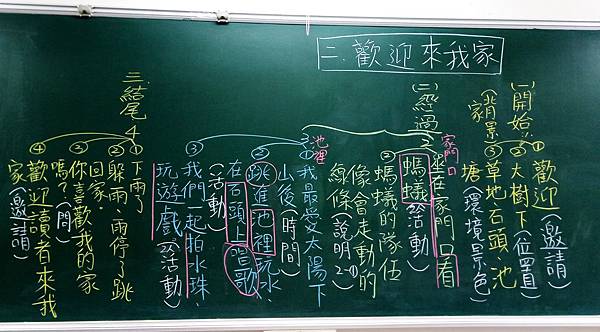 二.歡迎來我家
(一)開始:
(背景)
家
①歡迎(邀請)
②大樹下(位置)
③草地石頭、池
塘(環境景色)
(二)經過
家門口
①坐在家門口看
螞蟻(活動)
②螞蟻的隊伍
像會走動的
線條(說明2-①)
池裡
①我最愛太陽下
山後(時間)
②跳進池裡玩水、
在石頭上唱歌
(活動)
③我們一起拍水珠、
玩遊戲(活動)
三.結尾 4
①下雨了
②躲雨、雨停了跳
回家。
③你喜歡我的家
嗎?(問)
④歡迎讀者來我
家(邀請)